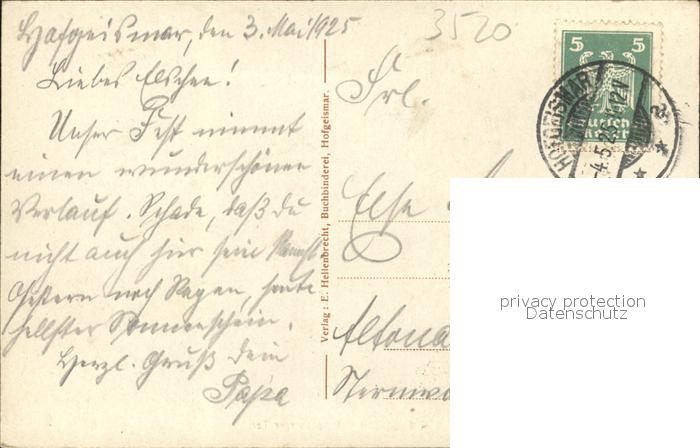 Hofgeismar, den 3. Mai 1925
3520
Liebes Elschen!
Unser Fest nimmt
einen wunderschönen
Verlauf. Schade, daß du
nicht auch hier sein kannst
Gestern noch Regen, heute
hellster Sonnenschein.
Herzl. Gruß dein
Papa
Verlag: E. Hellenbrecht, Buchbinderei, Hofgeismar.
Frl.
Else
Altona
5 5
HOFGEISMAR
privacy protection
Datenschutz